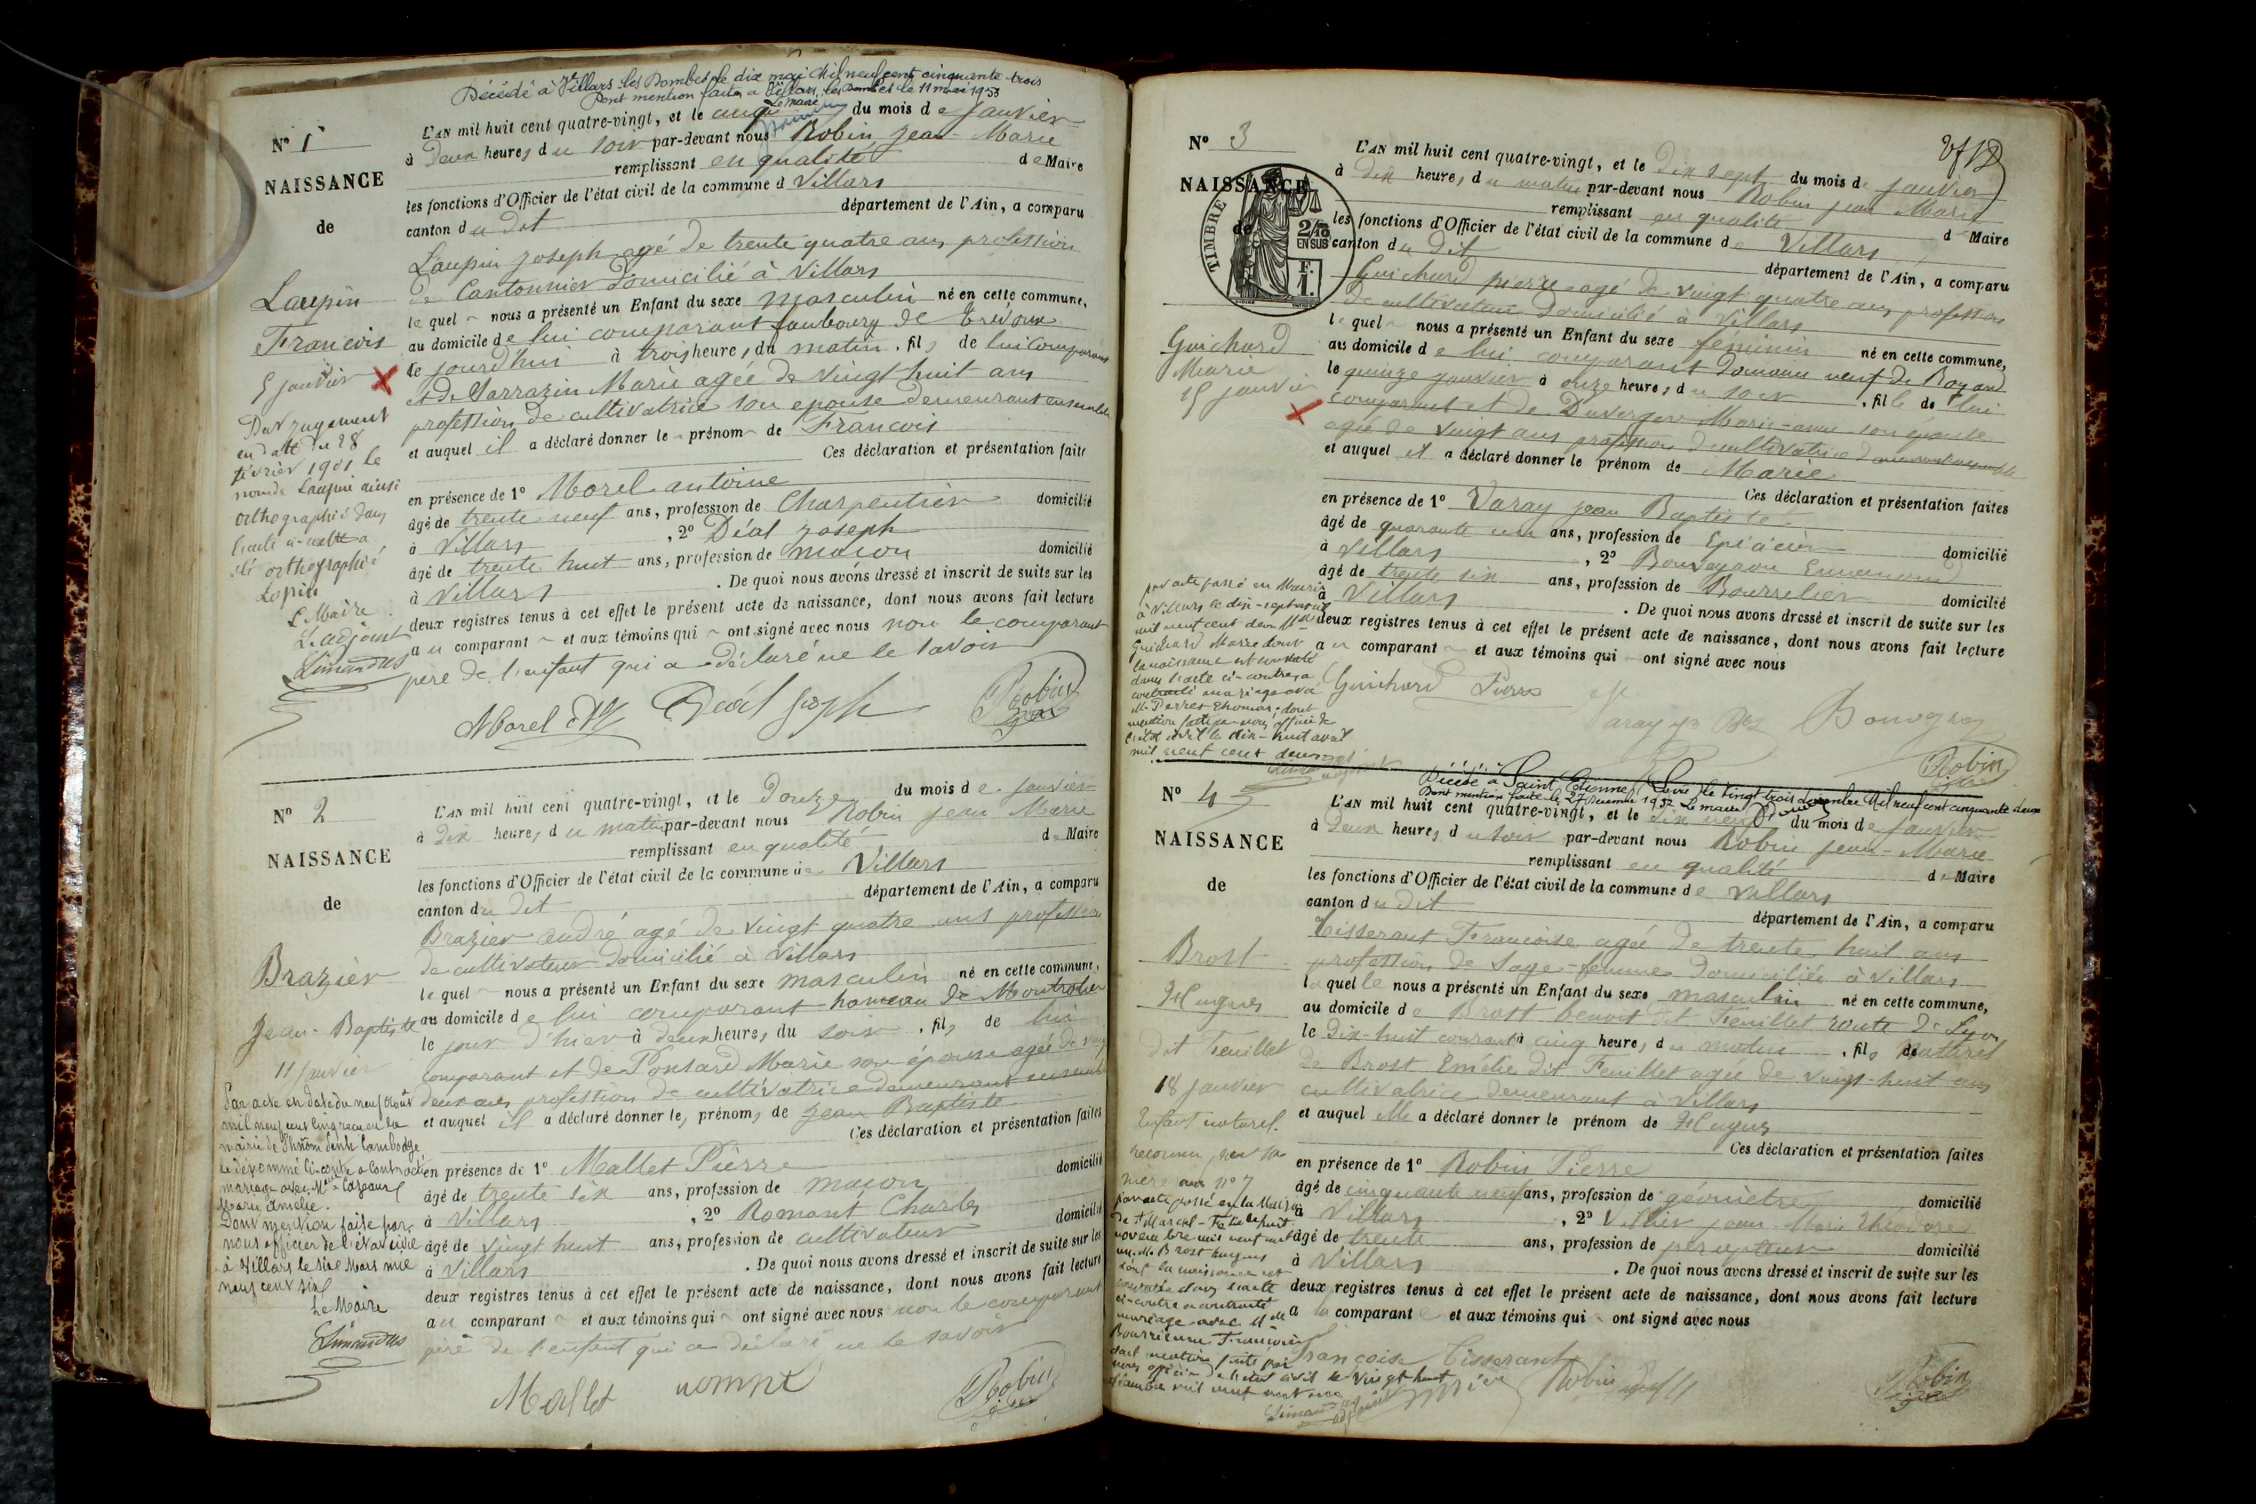 Décédé à Villars les Dombes le dix mai Mil neuf cent cinquante trois
Dont mention faite à Villars les Dombes le 11 mai 1953
Le Maire
N° 1
NAISSANCE
de
Laupin
Francois
5 janvier
Par jugement
en date du 28
février 1901 le
nom de Laupin ainsi
orthographié dans
l'acte ci-contre a
été orthographié
Lopin
Le Maire
L'adjoint
Limandas
L'AN mil huit cent quatre-vingt, et le cinq du mois de janvier
à Deux heures du soir par-devant nous Robin Jean-Marie
remplissant en qualité de Maire
les fonctions d'Officier de l'état civil de la commune d Villars
canton du dit département de l'Ain, a comparu
Laupin joseph agé de trente quatre ans, profession
de Cantonnier domicilié à Villars
lequel nous a présenté un Enfant du sexe masculin né en cette commune,
au domicile de lui comparant faubourg de Trevoux
le jourd'hui à trois heures du matin, fils de lui comparant
et de Sarrazin Marie agée de vingt huit ans
profession de cultivatrice son epouse demeurant ensemble
et auquel il a déclaré donner le prénom de Francois
Ces déclaration et présentation faites
en présence de 1° Morel antoine
âgé de trente neuf ans, profession de Charpentier domicilié
à Villars, 2° Déal joseph
âgé de trente huit ans, profession de macon domicilié
à Villars. De quoi nous avons dressé et inscrit de suite sur les
deux registres tenus à cet effet le présent acte de naissance, dont nous avons fait lecture
au comparant et aux témoins qui ont signé avec nous non le comparant
père de l'enfant qui a déclaré ne le savoir
Morel Déal Joseph Robin
N° 2
NAISSANCE
de
Brazier
Jean-Baptiste
11 janvier
Par acte en date du neuf août
mil neuf cent cinq reçu en la
mairie de Phnom Penh Cambodge
le dénommé ci-contre a contracté
mariage avec Mlle Cazeaux
Marie Amélie.
Dont mention faite par
nous officier de l'état civil
à Villars le six Mars mil
neuf cent six
Le Maire
Limandas
L'AN mil huit cent quatre-vingt, et le Douze du mois de janvier
à Dix heures du matin par-devant nous Robin Jean Marie
remplissant en qualité de Maire
les fonctions d'Officier de l'état civil de la commune de Villars
canton du dit département de l'Ain, a comparu
Brazier andré agé de vingt quatre ans profession
de cultivateur domicilié à Villars
lequel nous a présenté un Enfant du sexe masculin né en cette commune,
au domicile de lui comparant hameau de Montrobin
le jour d'hier à deux heures du soir, fils de lui
comparant et de Ponsard Marie son épouse agée de vingt
deux ans, profession de cultivatrice demeurant ensemble
et auquel il a déclaré donner les prénoms de Jean Baptiste
Ces déclaration et présentation faites
en présence de 1° Mallet Pierre
âgé de trente six ans, profession de maçon domicilié
à Villars, 2° Romant Charles
âgé de vingt huit ans, profession de cultivateur domicilié
à Villars. De quoi nous avons dressé et inscrit de suite sur les
deux registres tenus à cet effet le présent acte de naissance, dont nous avons fait lecture
au comparant et aux témoins qui ont signé avec nous non le comparant
père de l'enfant qui a déclaré ne le savoir
Mallet Romant Robin
N° 3
NAISSANCE
de
TIMBRE
2/10
EN SUS
F.
1.
Guichard
Marie
15 janvier
par acte passé en Mairie
à Villars le dix-sept avril
mil neuf cent deux Mlle
Guichard Marie dont
la naissance est constatée
dans l'acte ci-contre a
contracté mariage avec
M. Perret Thomas; dont
mention faite par nous, officier de
l'état civil le dix-huit avril
mil neuf cent deux
L'AN mil huit cent quatre-vingt, et le Dix sept du mois de janvier
à Dix heures du matin par-devant nous Robin Jean Marie
remplissant en qualité d Maire
les fonctions d'Officier de l'état civil de la commune de Villars
canton du dit département de l'Ain, a comparu
Guichard pierre agé de vingt quatre ans, profession
de cultivateur domicilié à Villars
lequel nous a présenté un Enfant du sexe feminin né en cette commune,
au domicile de lui comparant Domaine neuf de Boyard
le quinze janvier à onze heures du soir, fille de lui
comparant et de Duverger Marie-anne son épouse
agée de vingt ans profession de cultivatrice demeurant ensemble
et auquel il a déclaré donner le prénom de Marie
Ces déclaration et présentation faites
en présence de 1° Varay jean Baptiste
âgé de quarante un ans, profession de Epicier domicilié
à Villars, 2° Bouvayron Ennemond
âgé de trente six ans, profession de Bourrelier domicilié
à Villars. De quoi nous avons dressé et inscrit de suite sur les
deux registres tenus à cet effet le présent acte de naissance, dont nous avons fait lecture
au comparant et aux témoins qui ont signé avec nous
Guichard Pierre
Robin
Décédé à Saint Etienne, Loire le vingt trois décembre Mil neuf cent cinquante deux
Dont mention faite le 27 décembre 1952 Le maire
N° 4
NAISSANCE
de
Brost
Hugues
dit Feuillet
18 janvier
Enfant naturel.
reconnu par sa
mère acte n° 7
par acte passé en la Mairie
de huit
novembre mil neuf cent
un M. Brost hugues
dont la naissance est
constatée dans l'acte
ci-contre a contracté
mariage avec Mlle
Françoise
dont mention faite par
nous officier de l'état civil le vingt huit
L'AN mil huit cent quatre-vingt, et le dix neuf du mois de janvier
à Deux heures du soir par-devant nous Robin Jean-Marie
remplissant en qualité de Maire
les fonctions d'Officier de l'état civil de la commune de Villars
canton du dit département de l'Ain, a comparu
Tisserant Françoise agée de trente huit ans
profession de Sage-femme domiciliée à Villars
laquelle nous a présenté un Enfant du sexe masculin né en cette commune,
au domicile de Brost benoit dit Feuillet route de Lyon
le Dix-huit courant à cinq heures du matin, fils naturel
de Brost Emélie dit Feuillet agée de vingt-huit ans
cultivatrice demeurant à Villars
et auquel elle a déclaré donner le prénom de Hugues
Ces déclaration et présentation faites
en présence de 1° Robin Pierre
âgé de cinquante neuf ans, profession de géomètre domicilié
à Villars, 2° jean Marie Théodore
âgé de trente ans, profession de percepteur domicilié
à Villars. De quoi nous avons dressé et inscrit de suite sur les
deux registres tenus à cet effet le présent acte de naissance, dont nous avons fait lecture
a la comparante et aux témoins qui ont signé avec nous
Françoise Tisserant
Robin Robin